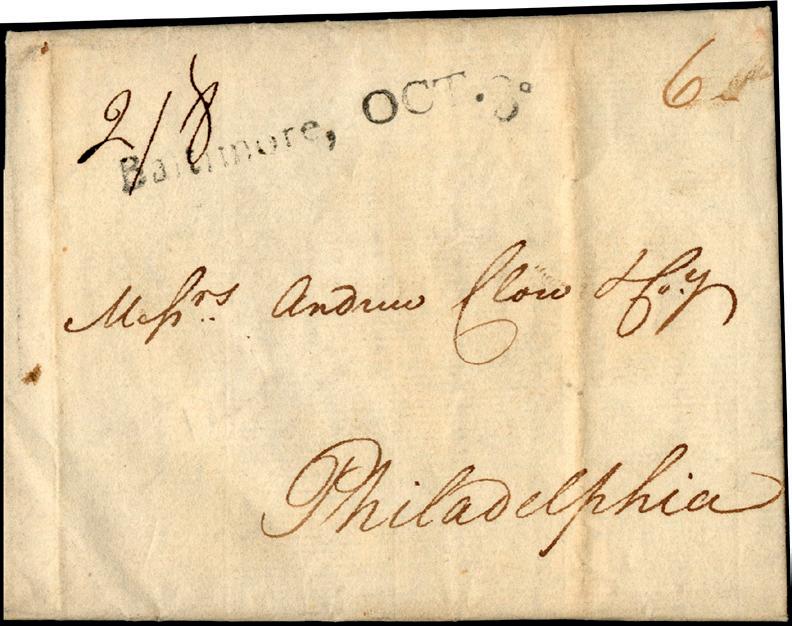 2/8
6
Baltimore, OCT. 8
Messrs. Andrew Clow & Co.y
Philadelphia